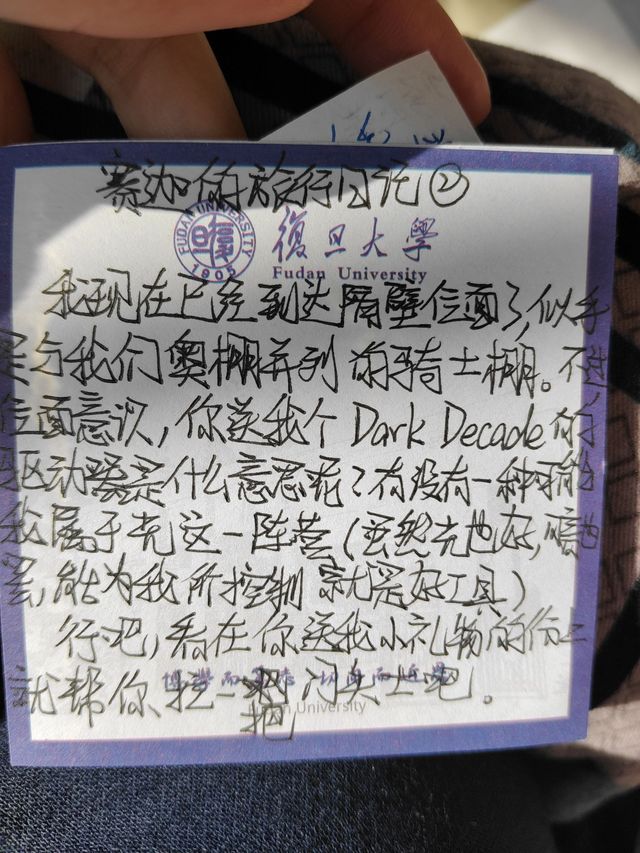 赛迦俏旅行日记②
FUDAN UNIVERSITY
1905
復旦大學
Fudan University
我现在已经到达隔壁位面了,似乎
是与我们奥棚并列的骑士棚。不过
位面意识,你送我个 Dark Decade 的
驱动器是什么意思呢?有没有一种可能
我属于光这一阵营(虽然光也好,暗也
罢,能为我所控制 就是好工具)
行吧,看在你送我小礼物的份上
就帮你、控一把 门矢士吧。
博學而篤志 切問而近思
Fudan University